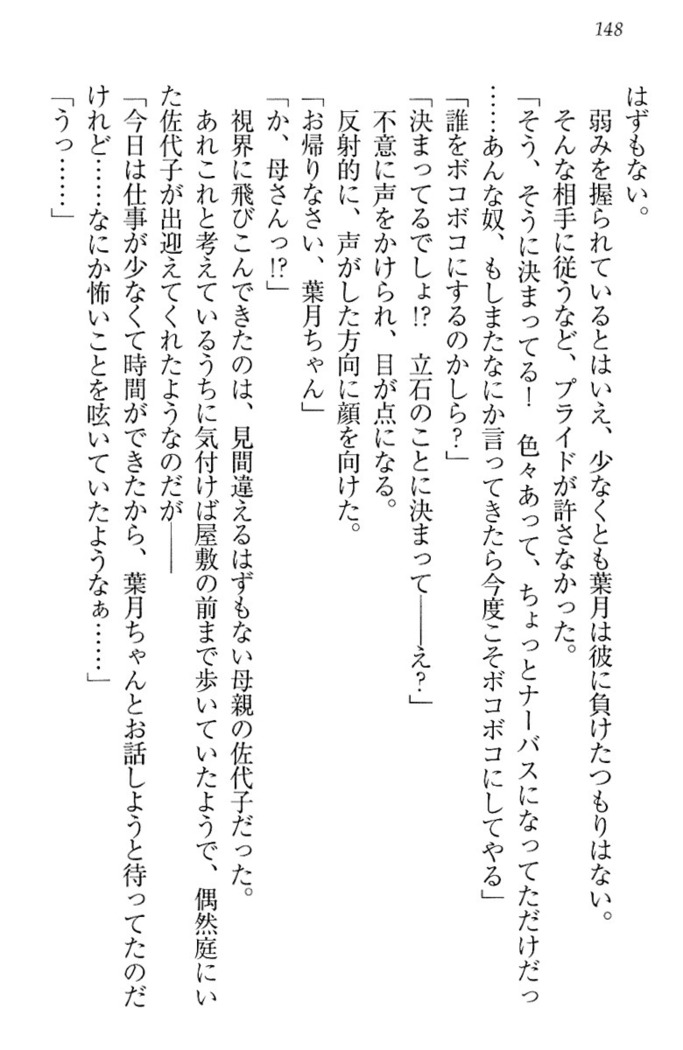 148
はずもない。
　弱みを握られているとはいえ、少なくとも葉月は彼に負けたつもりはない。
　そんな相手に従うなど、プライドが許さなかった。
「そう、そうに決まってる！　色々あって、ちょっとナーバスになってただけだっ
……あんな奴、もしまたなにか言ってきたら今度こそボコボコにしてやる」
「誰をボコボコにするのかしら？」
「決まってるでしょ!?　立石のことに決まって――え？」
　不意に声をかけられ、目が点になる。
　反射的に、声がした方向に顔を向けた。
「お帰りなさい、葉月ちゃん」
「か、母さんっ!?」
　視界に飛びこんできたのは、見間違えるはずもない母親の佐代子だった。
　あれこれと考えているうちに気付けば屋敷の前まで歩いていたようで、偶然庭にい
た佐代子が出迎えてくれたようなのだが――
「今日は仕事が少なくて時間ができたから、葉月ちゃんとお話しようと待ってたのだ
けれど……なにか怖いことを呟いていたようなぁ……」
「うっ……」